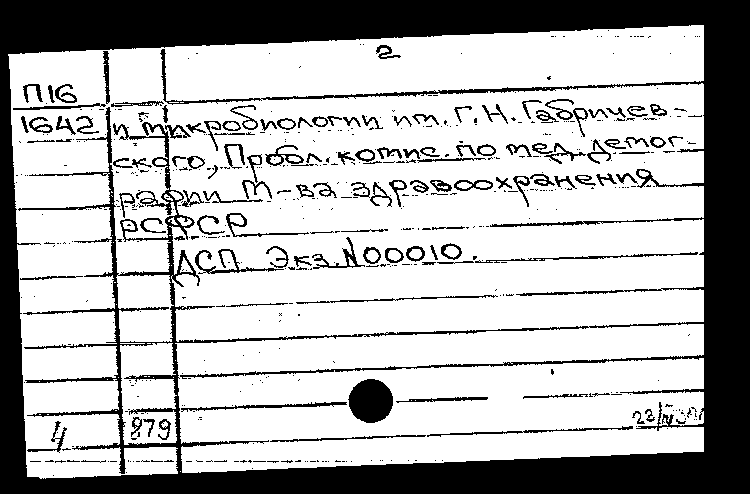 2
П16
1642 и микробиологии им. Г.Н. Габричев-
ского, Пробл. комис. по мед. демог-
рафии М-ва здравоохранения
РСФСР
ДСП. Экз. N00010.
4 879